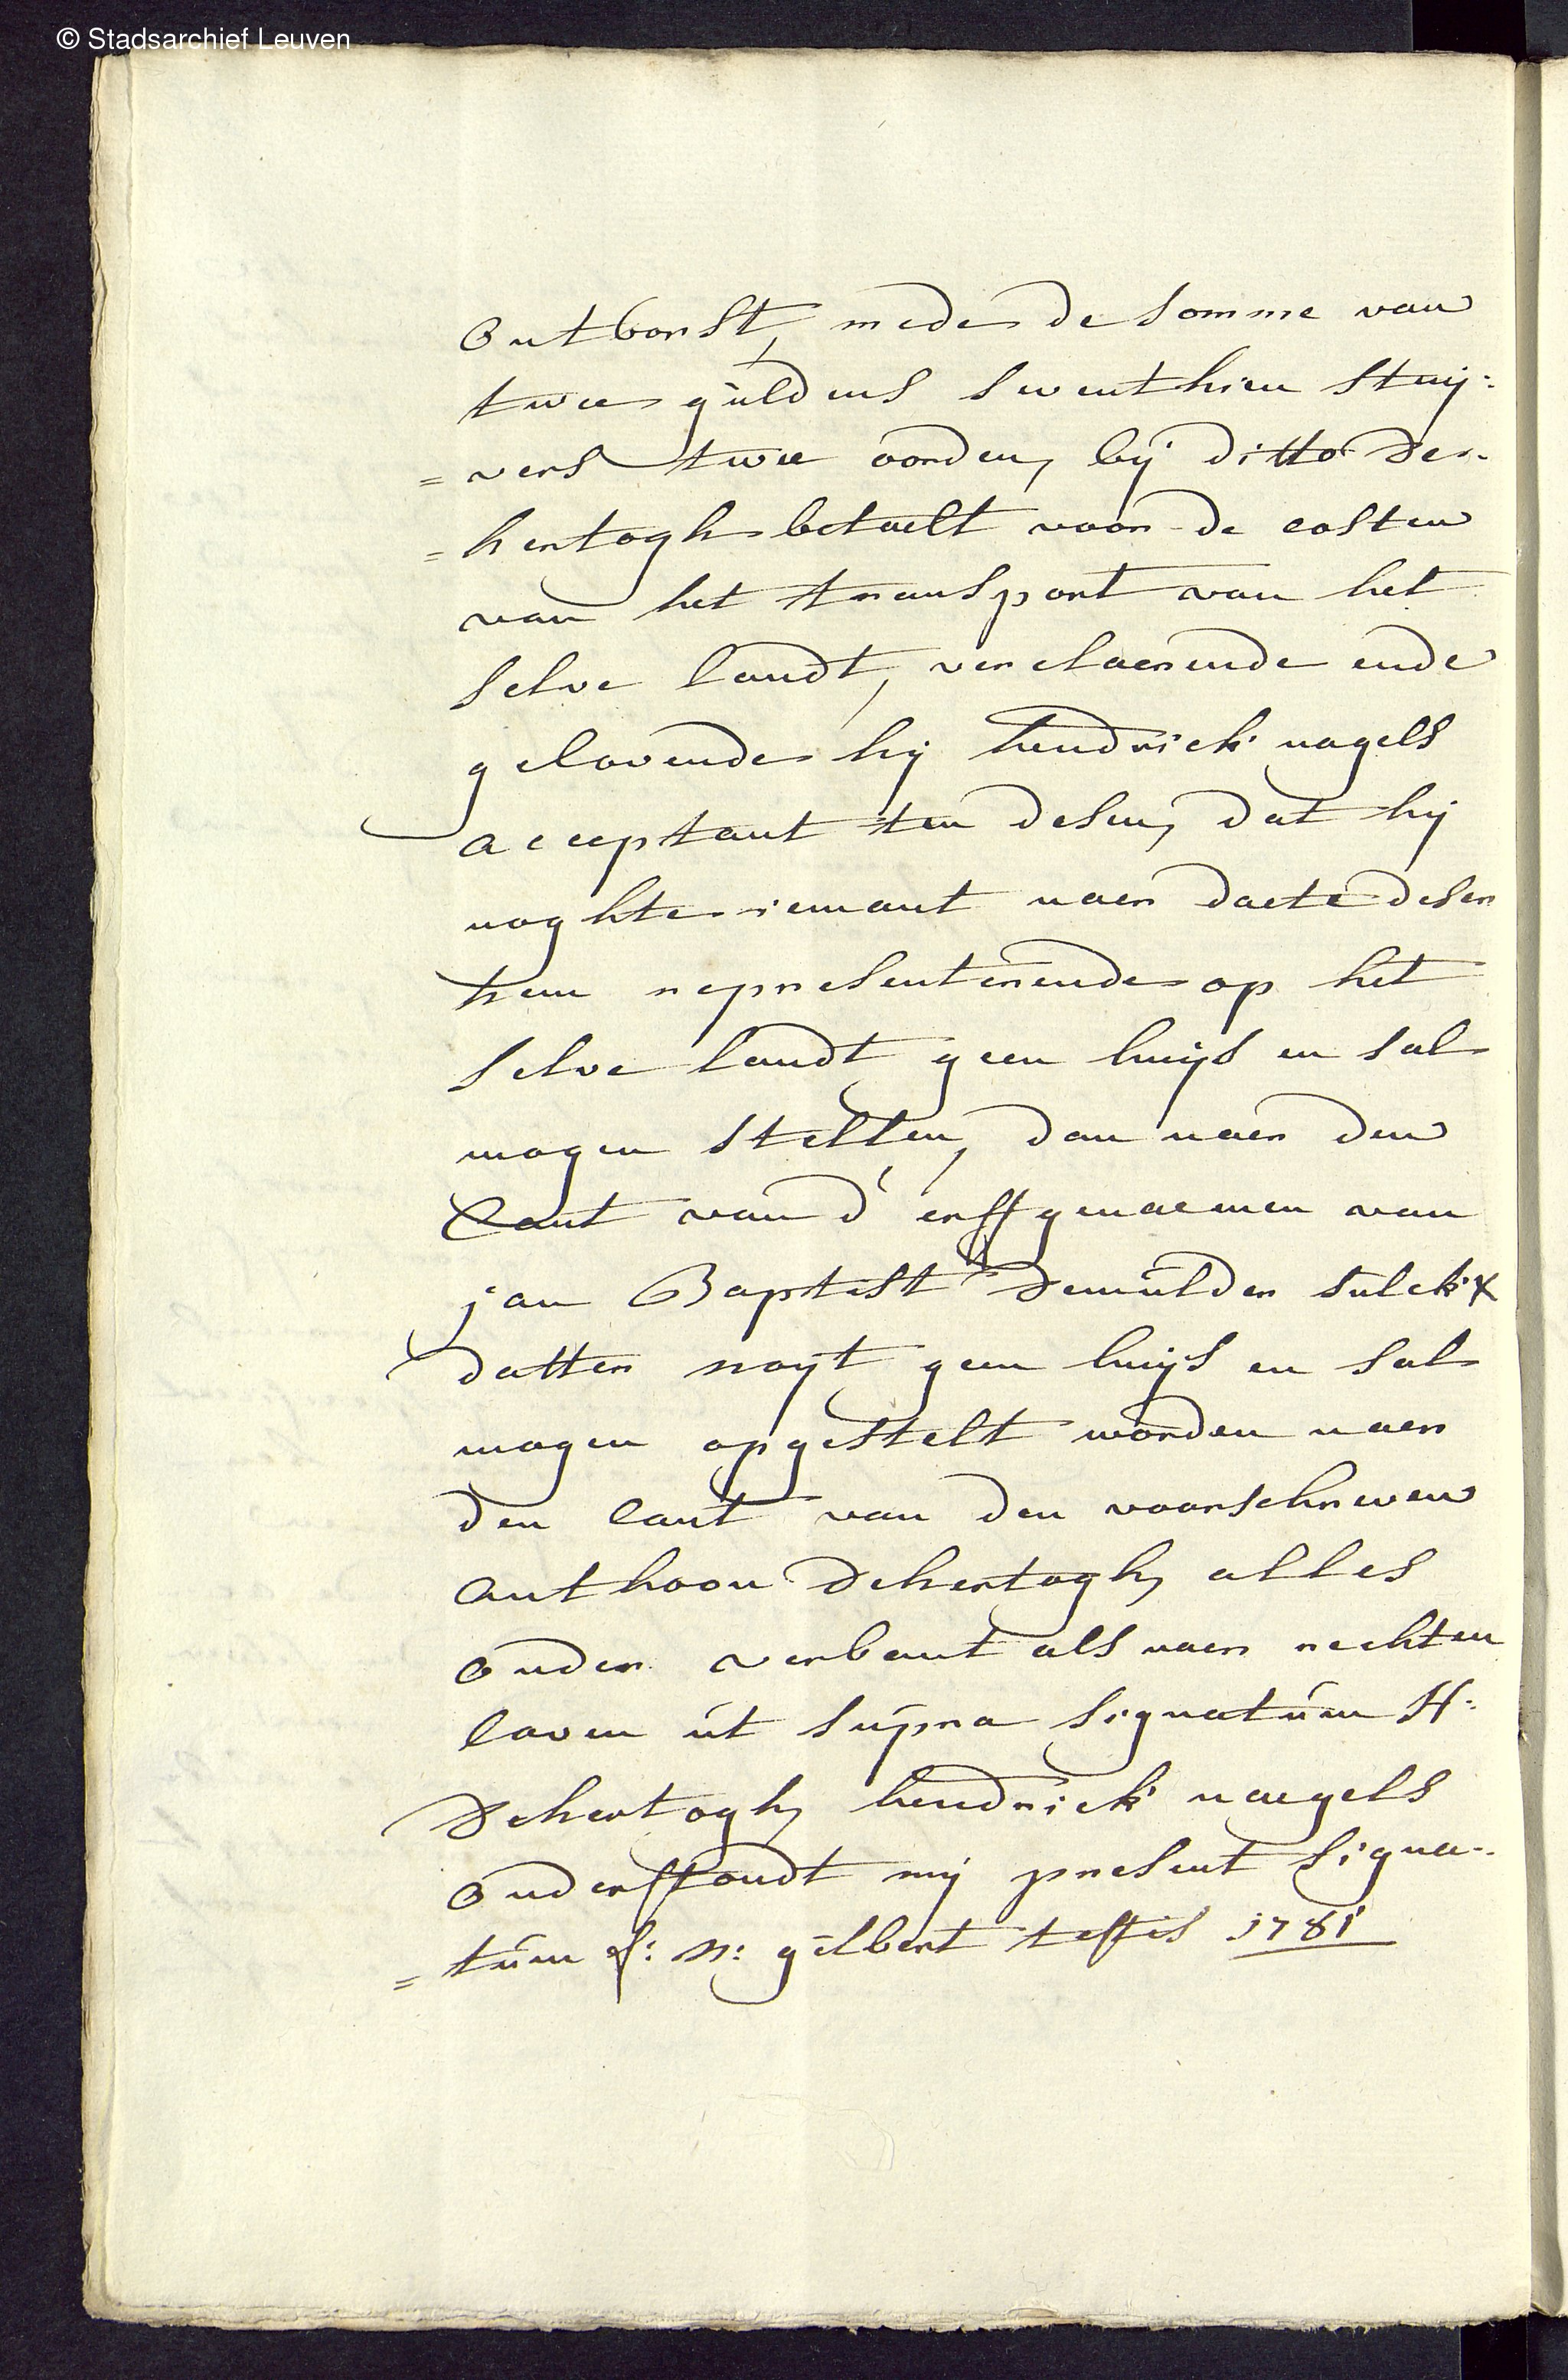 © Stadsarchief Leuven
Ontborst, mede de somme van
twee guldens seventhien stuij:
= vers twee oorden, bij ditto De-
= hertogh betaelt voor de costen
van het transport van het
selve landt, verclaerende ende
gelovende hij hendrick nagels
acceptant ten desen, dat hij
noghte iemant naer daete deser
hem representerende op het
selve landt geen huijs en sal
mogen stellen, dan naer den
Cant van d'erffgenaemen van
jan Baptist Demulder sulckx
datter noyt geen huijs en sal
mogen opgestelt worden naer
den cant van den voorschreven
Anthoon Dehertogh, alles
onder verbant als naer rechten
loven ut supra signatum H:
Dehertogh, hendrick naegels
onderstondt mij present signa-
= tum J: N: gilbert testis 1781